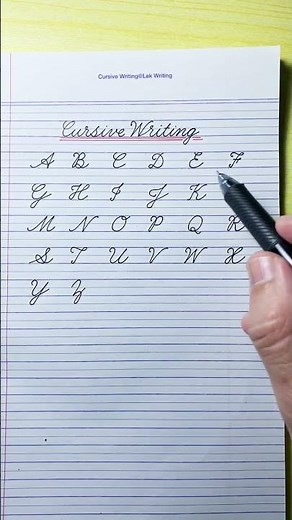 Cursive Writing@Lek Writing
Cursive Writing
A B C D E F
G H I J K
M N O P Q R
S T U V W X
Y Z